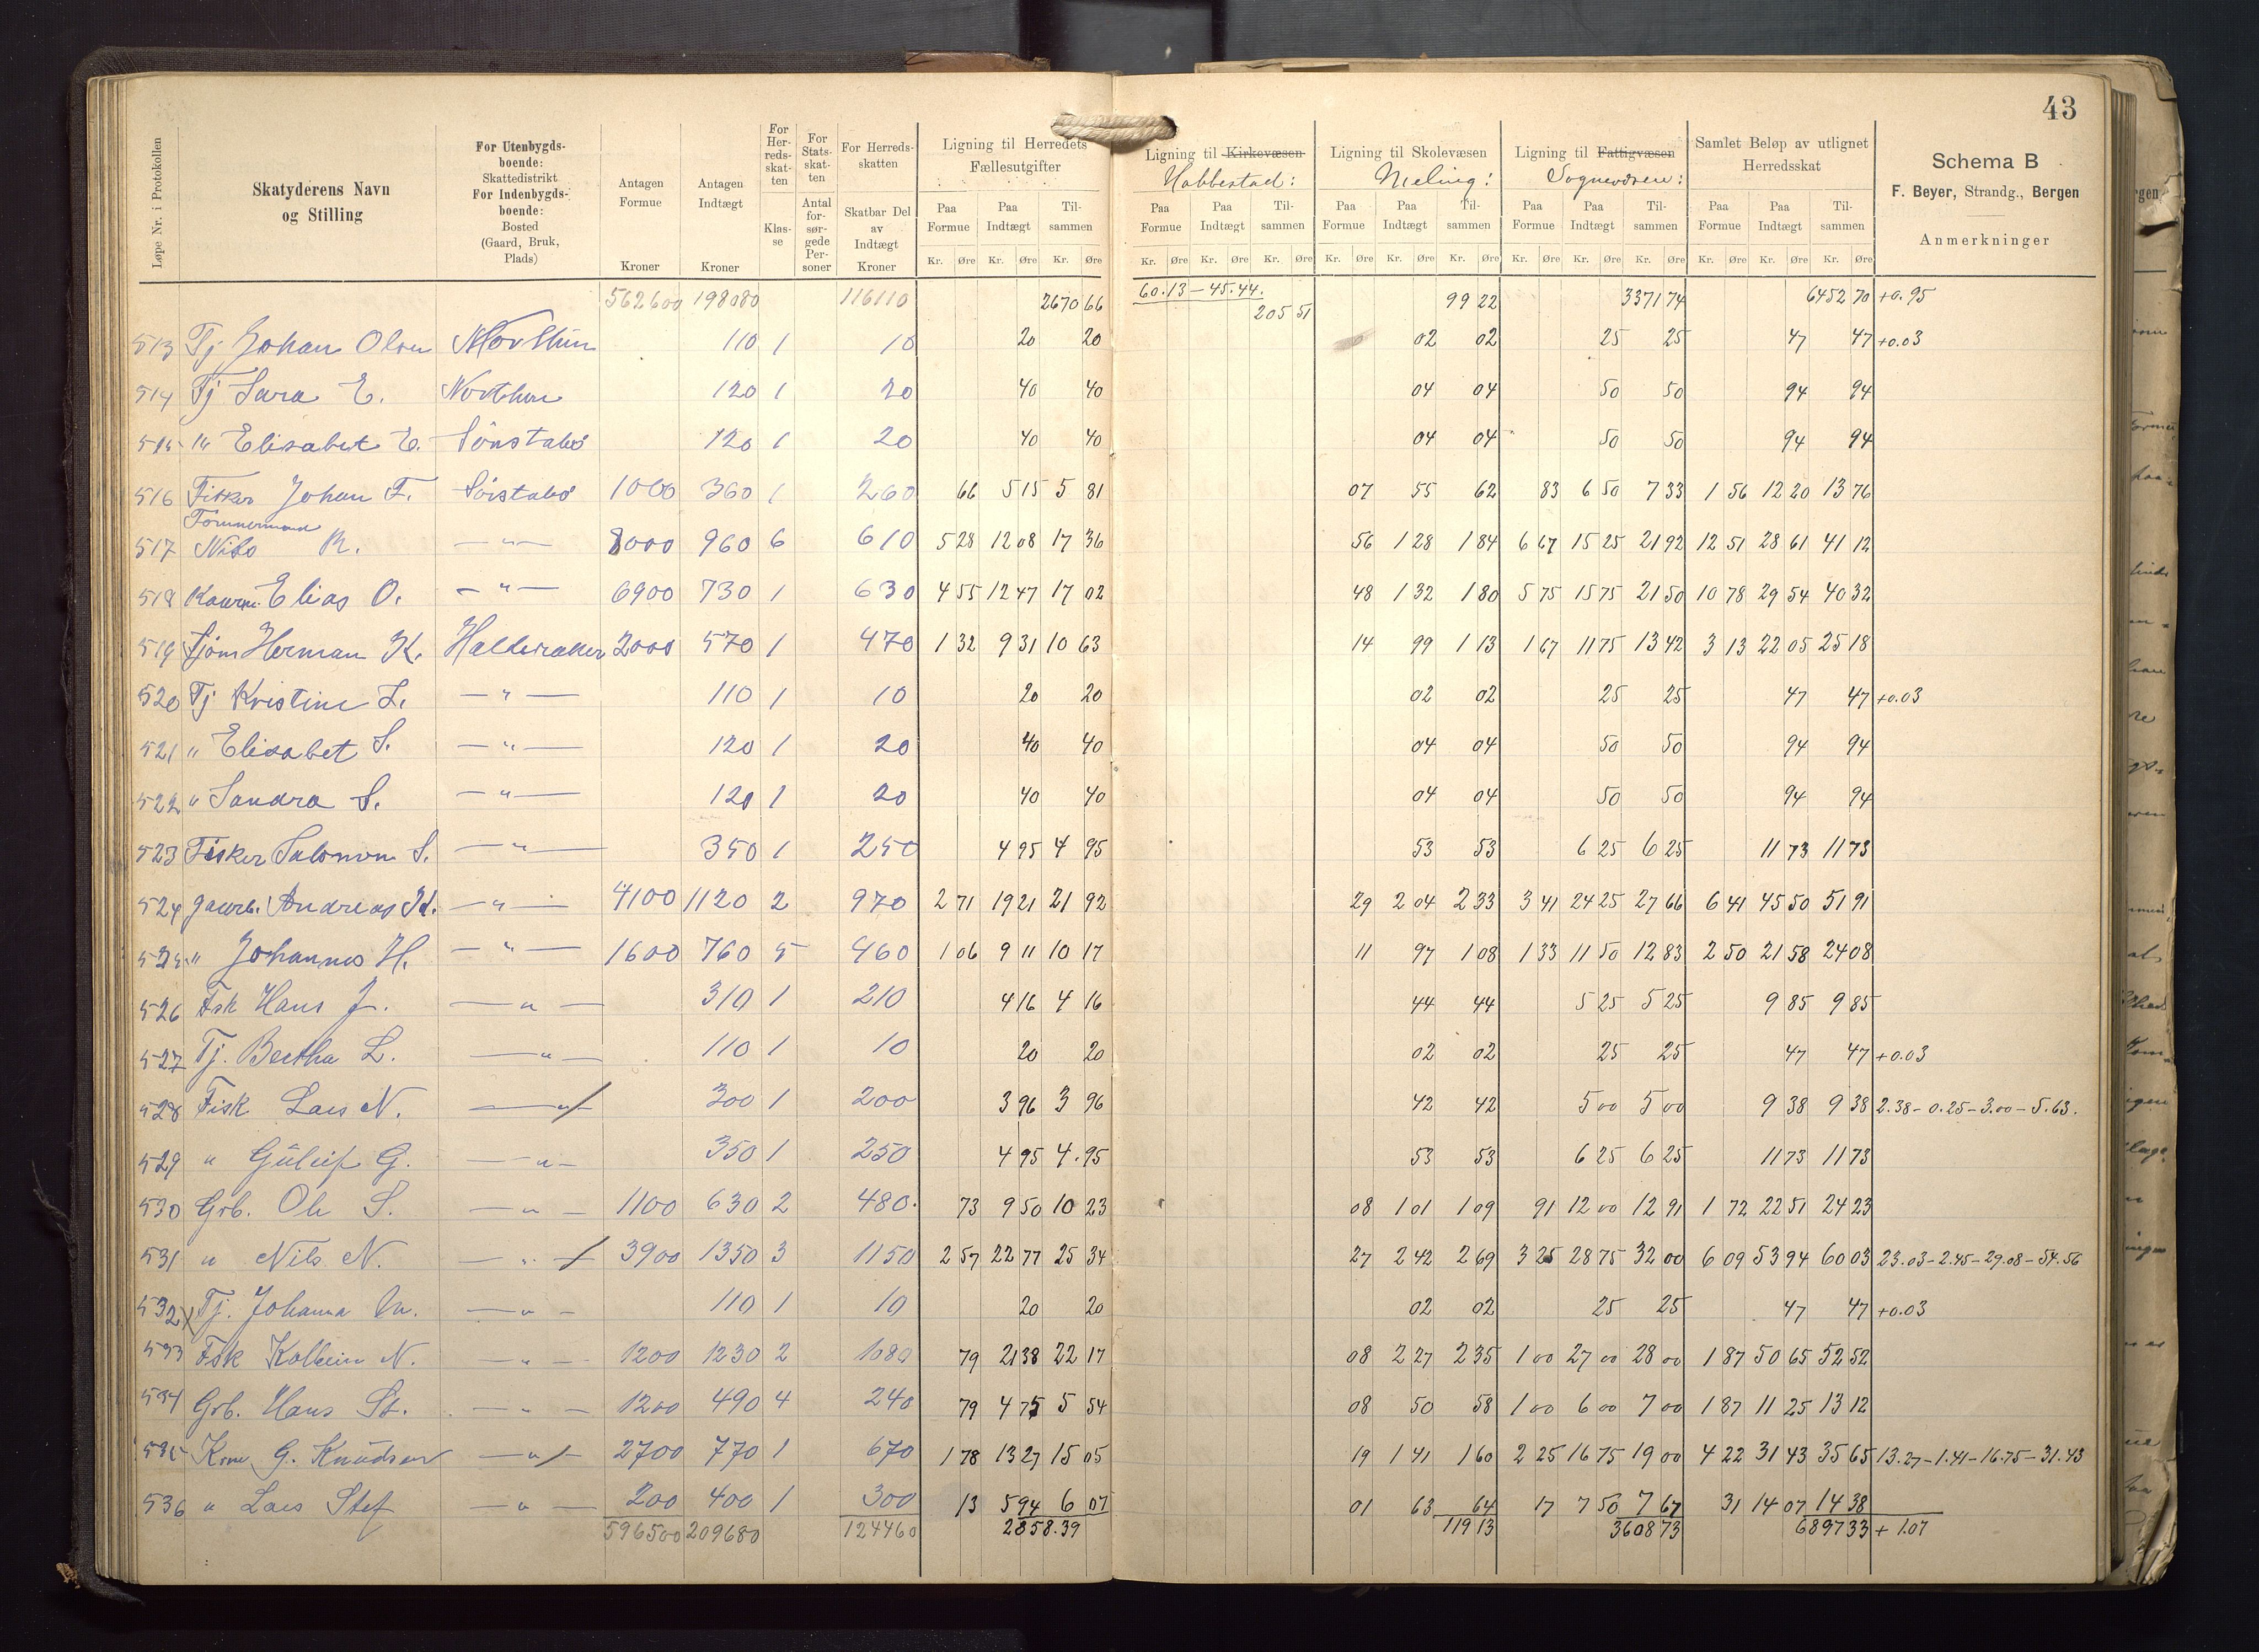 43
Løpe Nr. i Protokollen
Skatyderens Navn og Stilling
For Utenbygdsboende: Skattedistrikt For Indenbygdsboende: Bosted (Gaard, Bruk, Plads)
Antagen Formue Kroner
Antagen Indtægt Kroner
For Herredsskatten Klasse
For Statsskatten Antal forsørgede Personer
For Herredsskatten Skatbar Del av Indtægt Kroner
Ligning til Herredets Fællesutgifter
Ligning til Kirkevæsen Habbestad:
Ligning til Skolevæsen Meling:
Ligning til Fattigvæsen Sognevæsen:
Samlet Beløp av utlignet Herredsskat
Paa Formue Paa Indtægt Tilsammen
Paa Formue Paa Indtægt Tilsammen
Paa Formue Paa Indtægt Tilsammen
Paa Formue Paa Indtægt Tilsammen
Paa Formue Paa Indtægt Tilsammen
Kr. Øre Kr. Øre Kr. Øre Kr. Øre Kr. Øre Kr. Øre Kr. Øre Kr. Øre Kr. Øre Kr. Øre Kr. Øre Kr. Øre Kr. Øre Kr. Øre Kr. Øre
Schema B
F. Beyer, Strandg., Bergen
Anmerkninger
562600 198080 116110 2670 66 60.13 – 45.44. 205 51 99 22 3371 74 6452 70 +0.95
513 Tj Johan Olsen 110 1 10 20 20 02 02 25 25 47 47 +0.03
514 Tj Sara E. 120 1 20 40 40 04 04 50 50 94 94
515 " Elisabet E. Sönstabö 120 1 20 40 40 04 04 50 50 94 94
516 Fisker Johan T. Sörstabö 1000 360 1 260 66 5 15 5 81 07 55 62 83 6 50 7 33 1 56 12 20 13 76
Tömmermand
517 Nils R. — " — 8000 960 6 610 5 28 12 08 17 36 56 1 28 1 84 6 67 15 25 21 92 12 51 28 61 41 12
518 Elias O. — " — 6900 730 1 630 4 55 12 47 17 02 48 1 32 1 80 5 75 15 75 21 50 10 78 29 54 40 32
519 Herman K. Halderaker 2000 570 1 470 1 32 9 31 10 63 14 99 1 13 1 67 11 75 13 42 3 13 22 05 25 18
520 Tj Kristine L. — " — 110 1 10 20 20 02 02 25 25 47 47 +0.03
521 " Elisabet S. — " — 120 1 20 40 40 04 04 50 50 94 94
522 " Sandra S. — " — 120 1 20 40 40 04 04 50 50 94 94
523 Fisker Salomon S. — " — 350 1 250 4 95 4 95 53 53 6 25 6 25 11 73 11 73
524 Gaardb. Andreas — " — 4100 1120 2 970 2 71 19 21 21 92 29 2 04 2 33 3 41 24 25 27 66 6 41 45 50 51 91
525 " Johannes H. — " — 1600 760 5 460 1 06 9 11 10 17 11 97 1 08 1 33 11 50 12 83 2 50 21 58 24 08
526 Fsk Hans J. — " — 310 1 210 4 16 4 16 44 44 5 25 5 25 9 85 9 85
527 Tj. Bertha L. — " — 110 1 10 20 20 02 02 25 25 47 47 +0.03
528 Fisk Lars N. — " — 300 1 200 3 96 3 96 42 42 5 00 5 00 9 38 9 38 2.38 – 0.25 – 3.00 – 5.63.
529 " Gülief G. — " — 350 1 250 4 95 4.95 53 53 6 25 6 25 11 73 11 73
530 Grb. Ole S. — " — 1100 630 2 480. 73 9 50 10 23 08 1 01 1 09 91 12 00 12 91 1 72 22 51 24 23
531 " Nils N. — " — 3900 1350 3 1150 2 57 22 77 25 34 27 2 42 2 69 3 25 28 75 32 00 6 09 53 94 60 03 23.03 – 2.45 – 29.08 – 54.56
532 Tj. Johanna — " — 110 1 10 20 20 02 02 25 25 47 47 +0.03
533 Fsk Kolbein N. — " — 1200 1230 2 1080 79 21 38 22 17 08 2 27 2 35 1 00 27 00 28 00 1 87 50 65 52 52
534 Grb. Hans St. — " — 1200 490 4 240 79 4 75 5 54 08 50 58 1 00 6 00 7 00 1 87 11 25 13 12
535 G. Knudsen — " — 2700 770 1 670 1 78 13 27 15 05 19 1 41 1 60 2 25 16 75 19 00 4 22 31 43 35 65 13.27 – 1.41 – 16.75 – 31.43
536 " Lars Stef — " — 200 400 1 300 13 5 94 6 07 01 63 64 17 7 50 7 67 31 14 07 14 38
596500 209680 124460 2858.39 119 13 3608 73 6897 33 + 1.07